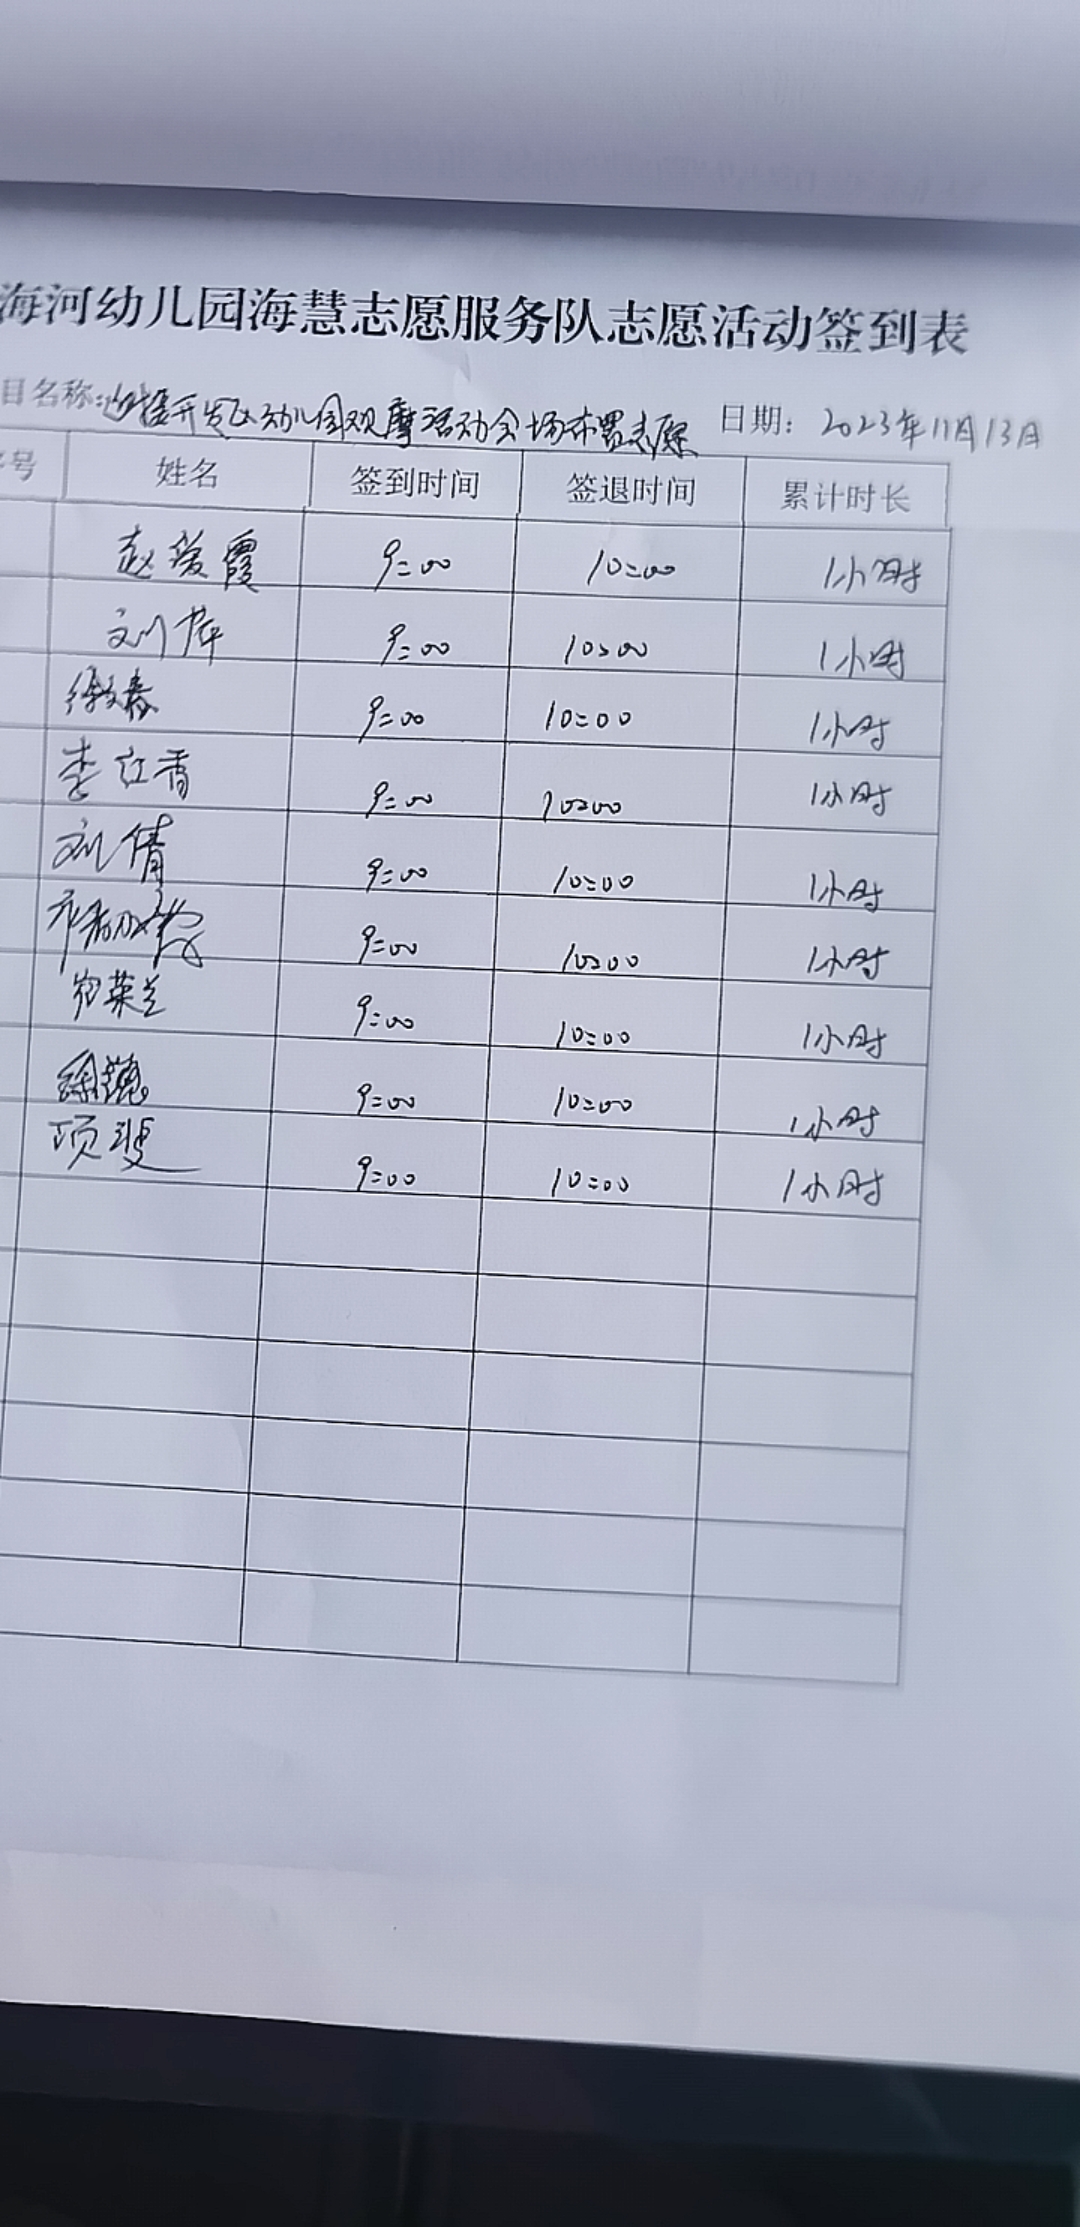 海河幼儿园海慧志愿服务队志愿活动签到表
目名称:迎接开发区幼儿园观摩活动会场布置志愿 日期: 2023年11月13日
号 姓名 签到时间 签退时间 累计时长
赵爱霞 9:00 10:00 1小时
刘萍 9:00 10:00 1小时
徐文春 9:00 10:00 1小时
李红香 9:00 10:00 1小时
刘倩 9:00 10:00 1小时
9:00 10:00 1小时
菜兰 9:00 10:00 1小时
徐 9:00 10:00 1小时
项斐 9:00 10:00 1小时